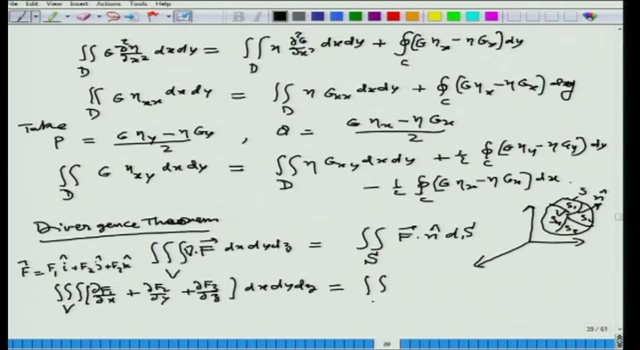 ∬_D G ∂²η/∂x² dx dy = ∬_D η ∂²G/∂x² dx dy + ∮_C (G η_x − η G_x) dy
∬_D G η_xx dx dy = ∬_D η G_xx dx dy + ∮_C (G η_x − η G_x) dy
Take P = (G η_y − η G_y)/2 , Q = (G η_x − η G_x)/2
∬_D G η_xy dx dy = ∬_D η G_xy dx dy + ½ ∮_C (G η_y − η G_y) dy
− ½ ∮_C (G η_x − η G_x) dx .
Divergence Theorem
∭_V ∇·F⃗ dx dy dz = ∬_S F⃗ · n̂ dS
F⃗ = F₁î + F₂ĵ + F₃k̂
∭_V [∂F₁/∂x + ∂F₂/∂y + ∂F₃/∂z] dx dy dz = ∬
S n̂
V S₁
23 / 61
39